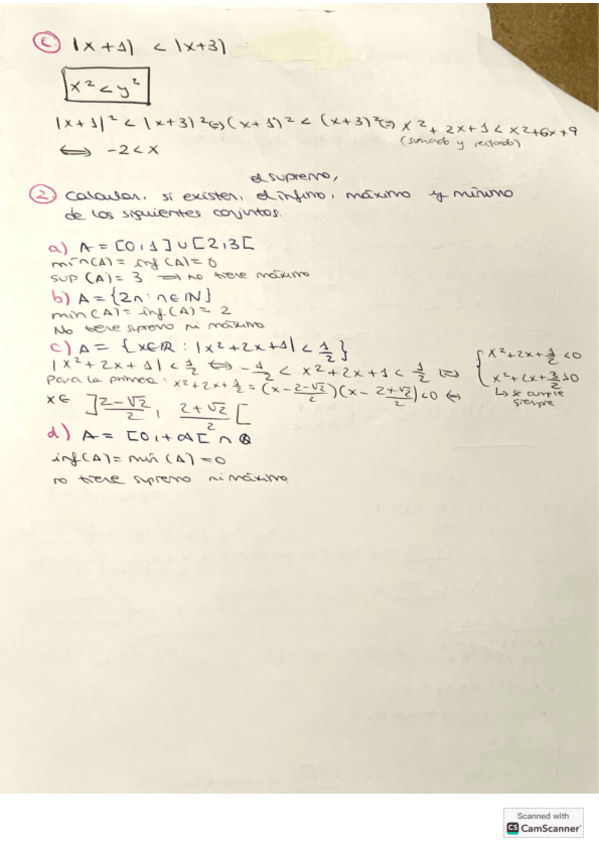 c) |x+1| < |x+3|
x² < y²
|x+1|² < |x+3|² ⇔ (x+1)² < (x+3)² ⇔ x² + 2x+1 < x²+6x+9
(sumando y restando)
⟺ -2 < x
el supremo,
2) Calcular, si existen, el ínfimo, máximo y mínimo
de los siguientes conjuntos.
a) A = [0,1] ∪ [2,3[
mín(A) = inf(A) = 0
sup(A) = 3 ⟹ no tiene máximo
b) A = {2n : n ∈ ℕ}
mín(A) = inf(A) = 2
No tiene supremo ni máximo
c) A = {x∈ℝ : |x²+2x+1| < 1/2}
|x²+2x+1| < 1/2 ⟺ -1/2 < x²+2x+1 < 1/2 ⟺ { x²+2x+1/2 < 0
x²+2x+3/2 > 0
↳ se cumple siempre
Para la primera: x²+2x+1/2 = (x - 2-√2/2)(x - 2+√2/2) < 0 ⟺
x ∈ ]2-√2/2, 2+√2/2[
d) A = [0,+∞[ ∩ ℚ
inf(A) = mín(A) = 0
no tiene supremo ni máximo
Scanned with
CS CamScanner